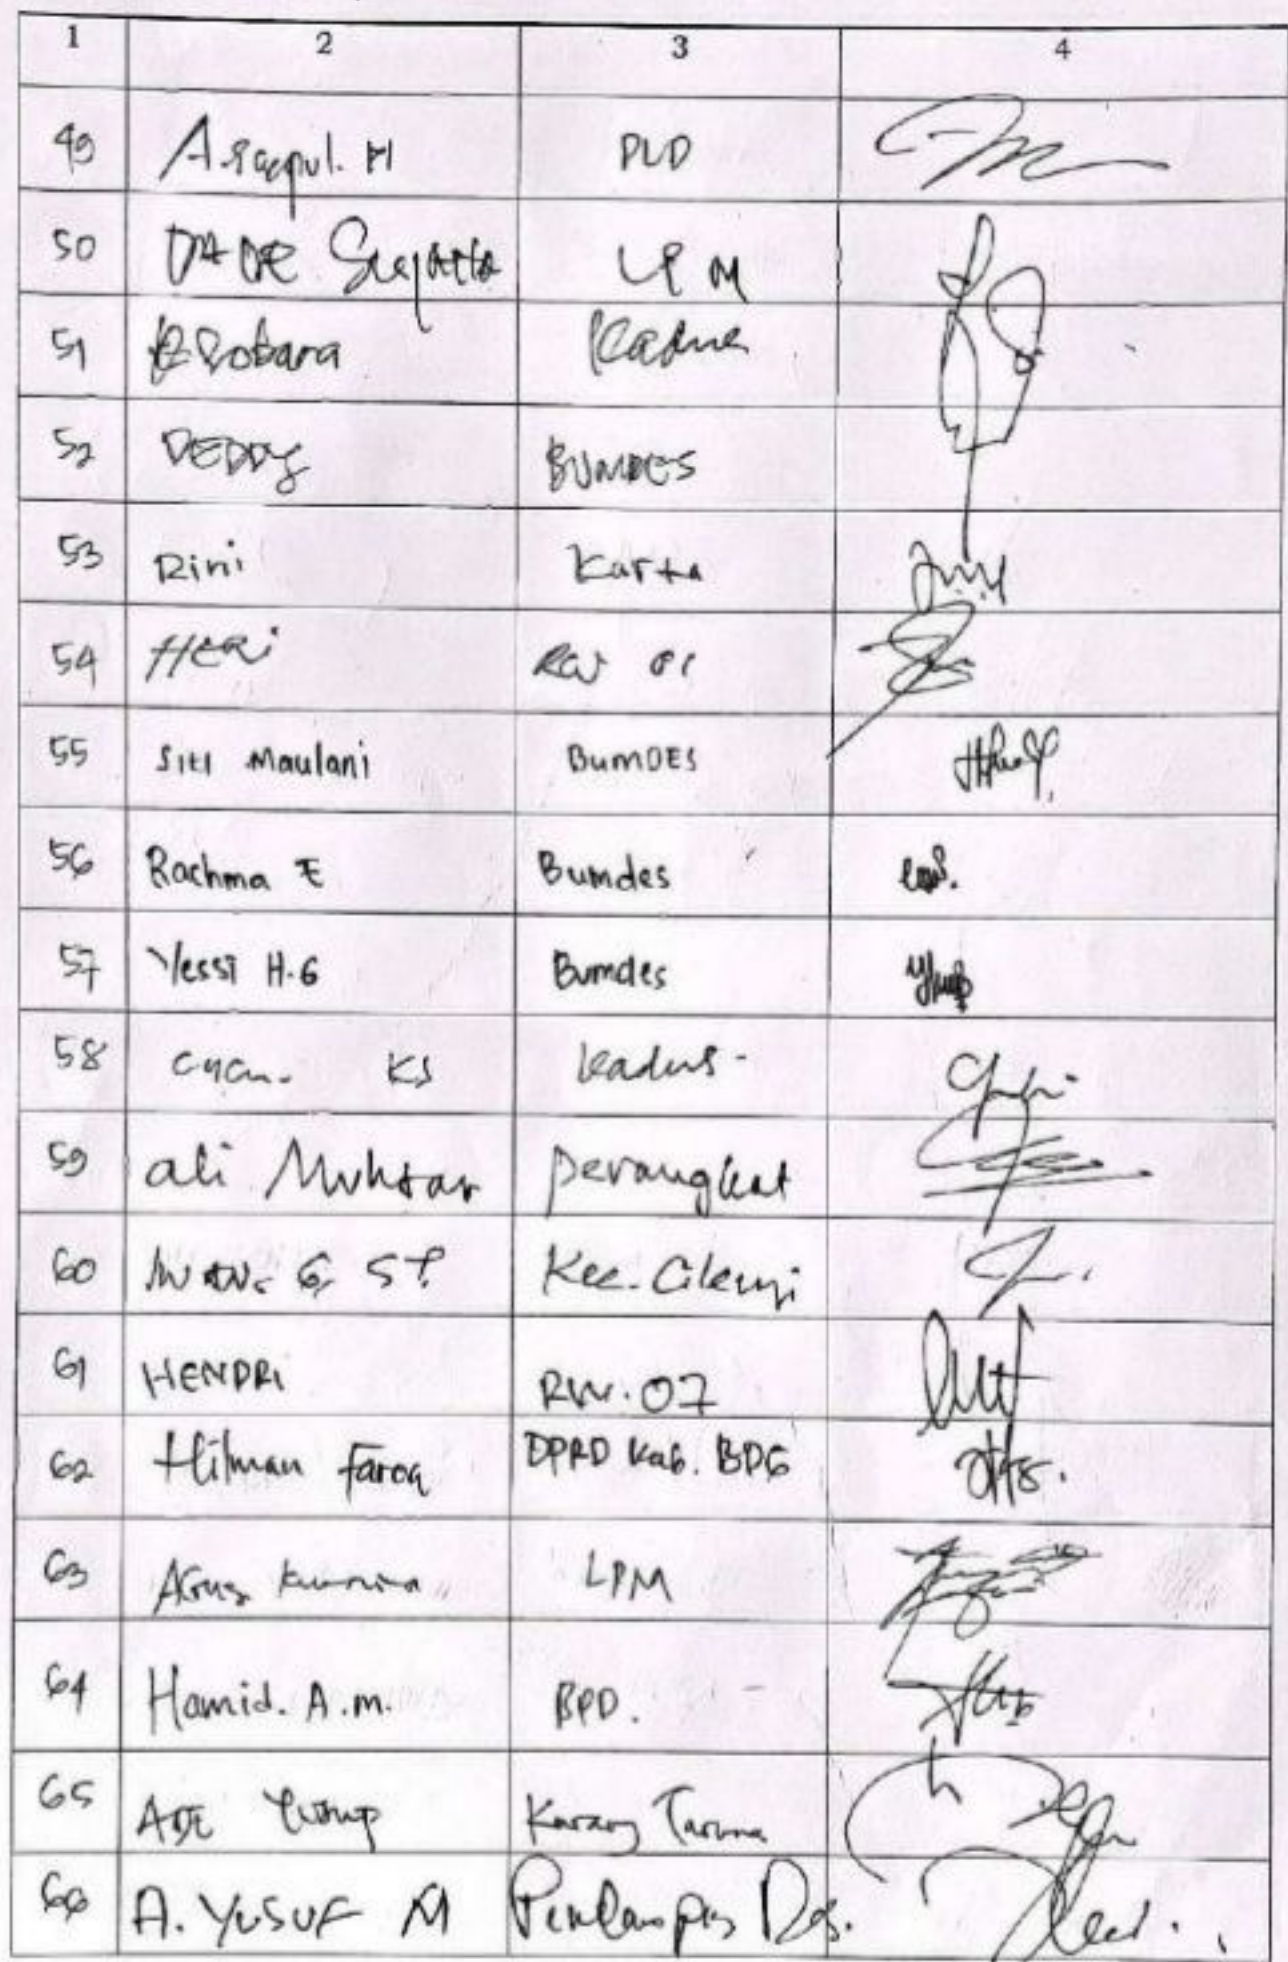 1 2 3 4
49 A. Saepul. H PLD
50 DADE Sujatta LPM
51 Kadus
52 DEDDY BUMDES
53 Rini Karta
54 HERi RW 01
55 Siti Maulani BumDES
56 Rachma E Bumdes
57 Yessi H.G Bumdes
58 KS Kadus
59 ali Muhtar perangkat
60 Kec. Cileunyi
61 HENDRi RW. 07
62 Hilman Faroq DPRD Kab. BDG
63 Agus Kurnia LPM
64 Hamid. A.m. BPD.
65 ADE Karang Taruna
66 A. YUSUF M